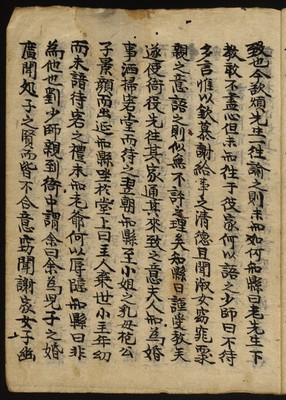 致也今欲煩先生一往諭之則未知如何知縣曰老先生下
教敢不盡心但未知往于彼家何以語之少師曰不待
多言惟以欽慕謝給事之清德且聞淑女窈窕
親之意語之則似無不許之理矣知縣曰謹受教矣
遂使衙役先往其家通其來致之意夫人知爲婚
事洒掃客堂而待之翌朝知縣至小姐之乳母抱公
子景顔而出延知縣坐於堂上曰主人棄世小主年幼
而未諳待客之禮未知老爺何以辱臨知縣曰非
爲他也劉少師親到衙中謂余曰余爲兒子之婚
廣聞処子之賢而皆不合意竊聞謝家女子幽